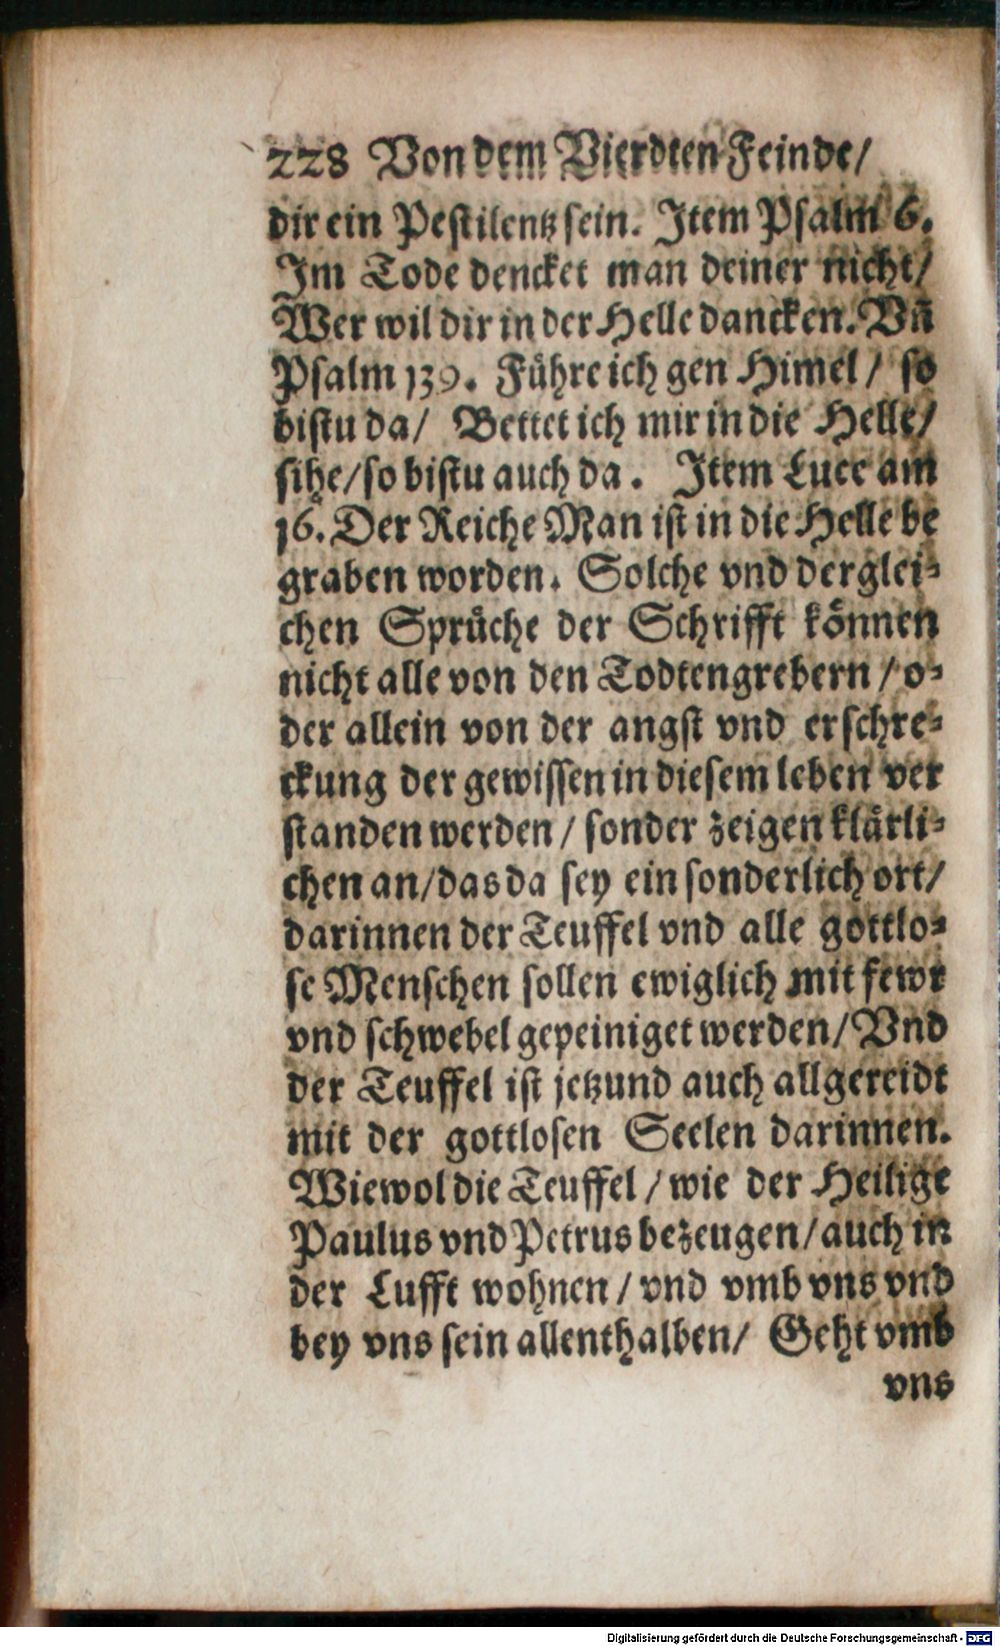 228 Von dem Vierdten Feinde/
dir ein Pestilentz sein. Item Psalm 6.
Im Tode dencket man deiner nicht/
Wer wil dir in der Helle dancken. Vñ
Psalm 139. Führe ich gen Himel/ so
bistu da/ Bettet ich mir in die Helle/
sihe/so bistu auch da. Item Luce am
16. Der Reiche Man ist in die Helle be
graben worden. Solche vnd derglei-
chen Sprüche der Schrifft können
nicht alle von den Todtengrebern/ o-
der allein von der angst vnd erschre-
ckung der gewissen in diesem leben ver
standen werden/ sonder zeigen klärli-
chen an/das da sey ein sonderlich ort/
darinnen der Teuffel vnd alle gottlo-
se Menschen sollen ewiglich mit fewr
vnd schwebel gepeiniget werden/ Vnd
der Teuffel ist jetzund auch allgereidt
mit der gottlosen Seelen darinnen.
Wiewol die Teuffel/ wie der Heilige
Paulus vnd Petrus bezeugen/ auch in
der Lufft wohnen/ vnd vmb vns vnd
bey vns sein allenthalben/ Geht vmb
vns
Digitalisierung gefördert durch die Deutsche Forschungsgemeinschaft - DFG